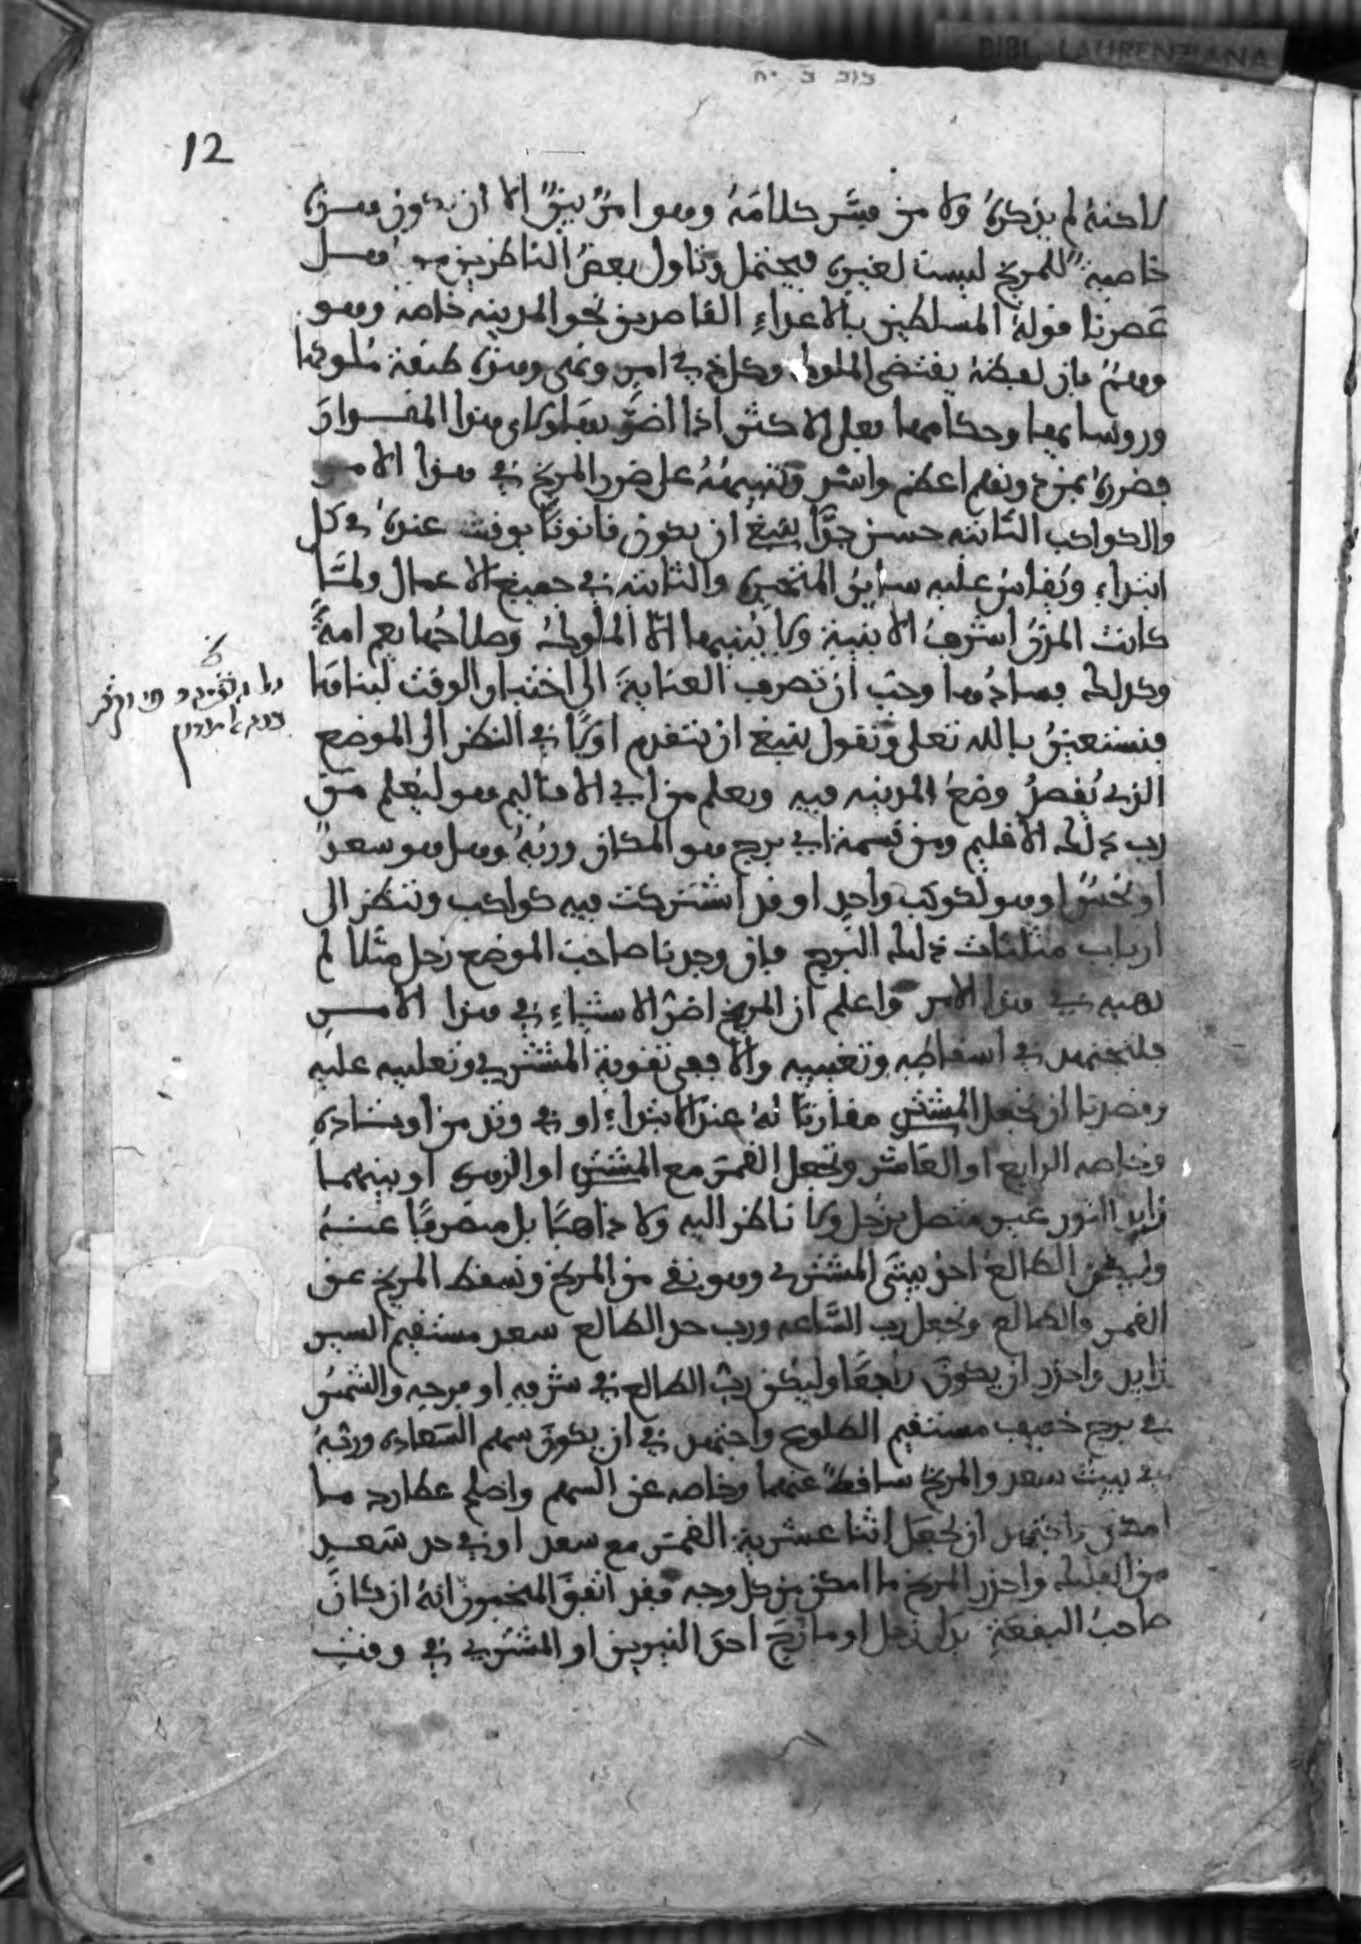 BIBL. LAURENZIANA
12
لاكنه لم يذكره ولا من فسّر كلامَهُ وهو امرٌ بيّنٌ الا ان يكون هذه
خاصيةً للمريخ ليست لغيره فيحتمل وتاول بعضُ الناظرين من اهل
عَصرنا قولهُ المسلطين بالاعداءِ القاصدين نحو المدينه خاصه وهو
وهمٌ فان لفظهُ يقتضى الملوك وكل ذى امرٍ ونهى وهذه طبقة ملوكها
وروسايها وحكامها فعلى الاكثر اذا اضرّ بهاولاى هذا المقدار
فضرره بمن دونهم اعظم واشر وتنبيهُهُ على ضرر المريخ في هذا الامر
والكواكب الثابته حسن جدًّا ينبغ ان يكون قانونًا يوقف عنده في كل
ابتداءٍ ويُقاسُ عليه سايرُ المتحيره والثابته في جميع الاعمال ولمّا
كانت المدنُ اشرفُ الابنية ولا يَبنيها الّا الملوكُ وصلاحُها يعم امةً
وكذلك فسادُها وجب ان تصرف العنايةَ الى اختيار الوقت لبنايها
فنستعينُ بالله تعلى ونقول ينبغ ان نتقدم اوّلًا في النظر الى الموضع
الذي يُقصدُ وضعُ المدينه فيه ويعلم من اي الاقاليم هو ليُعلم مَن
رب ذلك الاقليم ومن قسمة اي برج هو المكان وربُّهُ وهل هو سعدٌ
او نحسٌ او هو لكوكب واحدٍ او قد اشتركت فيه كواكب وننظر الى
ارباب مثلثات ذلك البُرج فان وجدنا صاحبَ الموضع زحل مثلا لم
نهبه في هذا الامر واعلم ان المريخ اضرّ الاشياءِ في هذا الامرِ
فلتجتهد في اسقاطه وتغييبه والافعى تقوية المشتري وتغليبه عليه
وقصدنا ان نجعل المشتري مقارنا لهُ عند الابتداءِ او في وتد من اوتاده
وخاصه الرابع او العاشر ونجعل القمرَ مع المشتري او الزهره او بينهما
زايد النور غير متصل بزحل ولا ناظر اليه ولا ذاهبًا بل منصرفًا عنهُ
وليكن الطالعُ احدُ بيتَى المشتري وهو نقي من المريخ ونسقط المريخ عن
القمر والطالع ونجعل رب السَّاعه ورب حد الطالع سعد مستقيم السير
زايد واحذر ان يكونَ راجعًا وليكن ربُّ الطالع في شرفهِ او فرحه والشمسُ
في برج خصيب مستقيم الطلوع واجتهد في ان يكونَ سهم السّعاده وربّهُ
في بيت سعد والمريخ ساقطٌ عنهما وخاصه عن السهم واصلح عطارد ما
امكن واجتهد ان تجعَل اثنا عشرية القمر مع سعد او في حد سَعد
من الفلك واحذر المريخ ما امكن من كل وجه فقد اتفقَ المنجمون انهُ ان كانَ
صاحبُ البقعةِ بدل زحل او مازجَ احدَ النيرين او المشتري في وقت